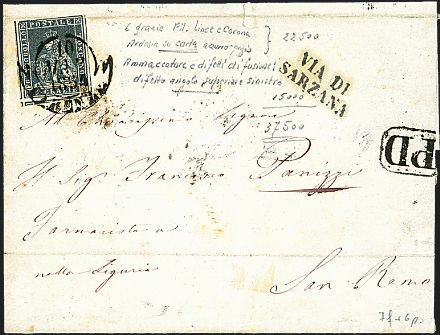 BOLLO POSTALE TOSCANO
10
6 grazie Fil. linee e corona } 22500
Ardesia su carta azzurro-grigio
Ammaccature e difetti di fusione;
difetto angolo superiore sinistro
15000
37500
VIA DI
SARZANA
PD
Al Signore
Il Sig. Francesco Panizzi
Farmacista a
nella Liguria
San Remo